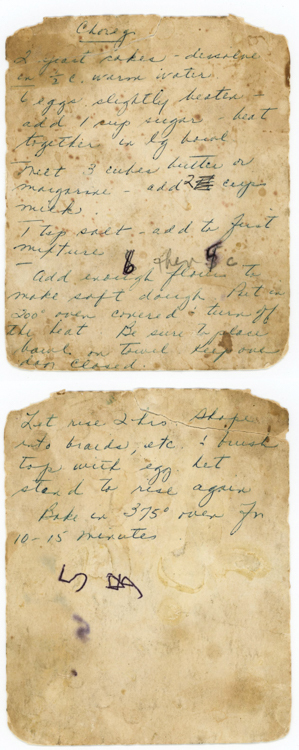 Choreg
2 yeast cakes - dissolve
in ½ c. warm water
6 eggs, slightly beaten -
add 1 cup sugar - beat
together in lg bowl
Melt 3 cubes butter or
margarine - add 2 cups
milk
1 tsp salt - add to first
mixture
6 8 c
- Add enough flour to
make soft dough. Put in
200° oven covered - turn off
the heat Be sure to place
bowl on towel keep oven
door closed.
Let rise 2 hrs. Shape
into braids, etc & brush
top with egg let
stand to rise again
Bake in 375° oven for
10-15 minutes